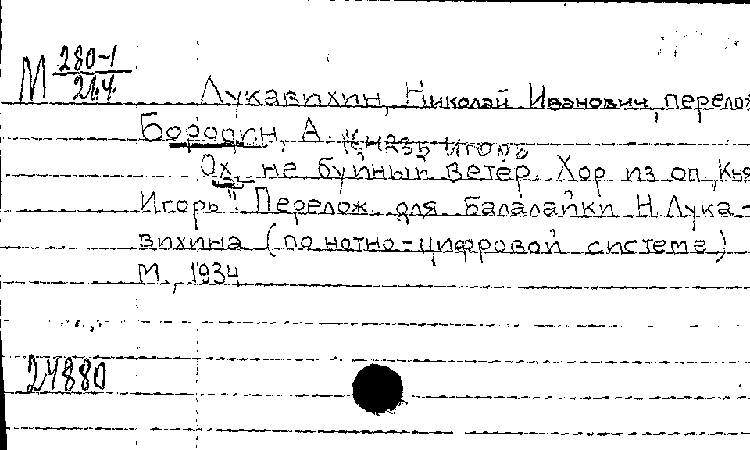 М 280-1
264
Лукавихин, Николай Иванович, перелож
Бородин, А. Князь Игорь
Ох, не буйный ветер. Хор из оп „Кня
Игорь". Перелож. для балалайки Н. Лука-
вихина (по нотно-цифровой системе)
М., 1934
24880